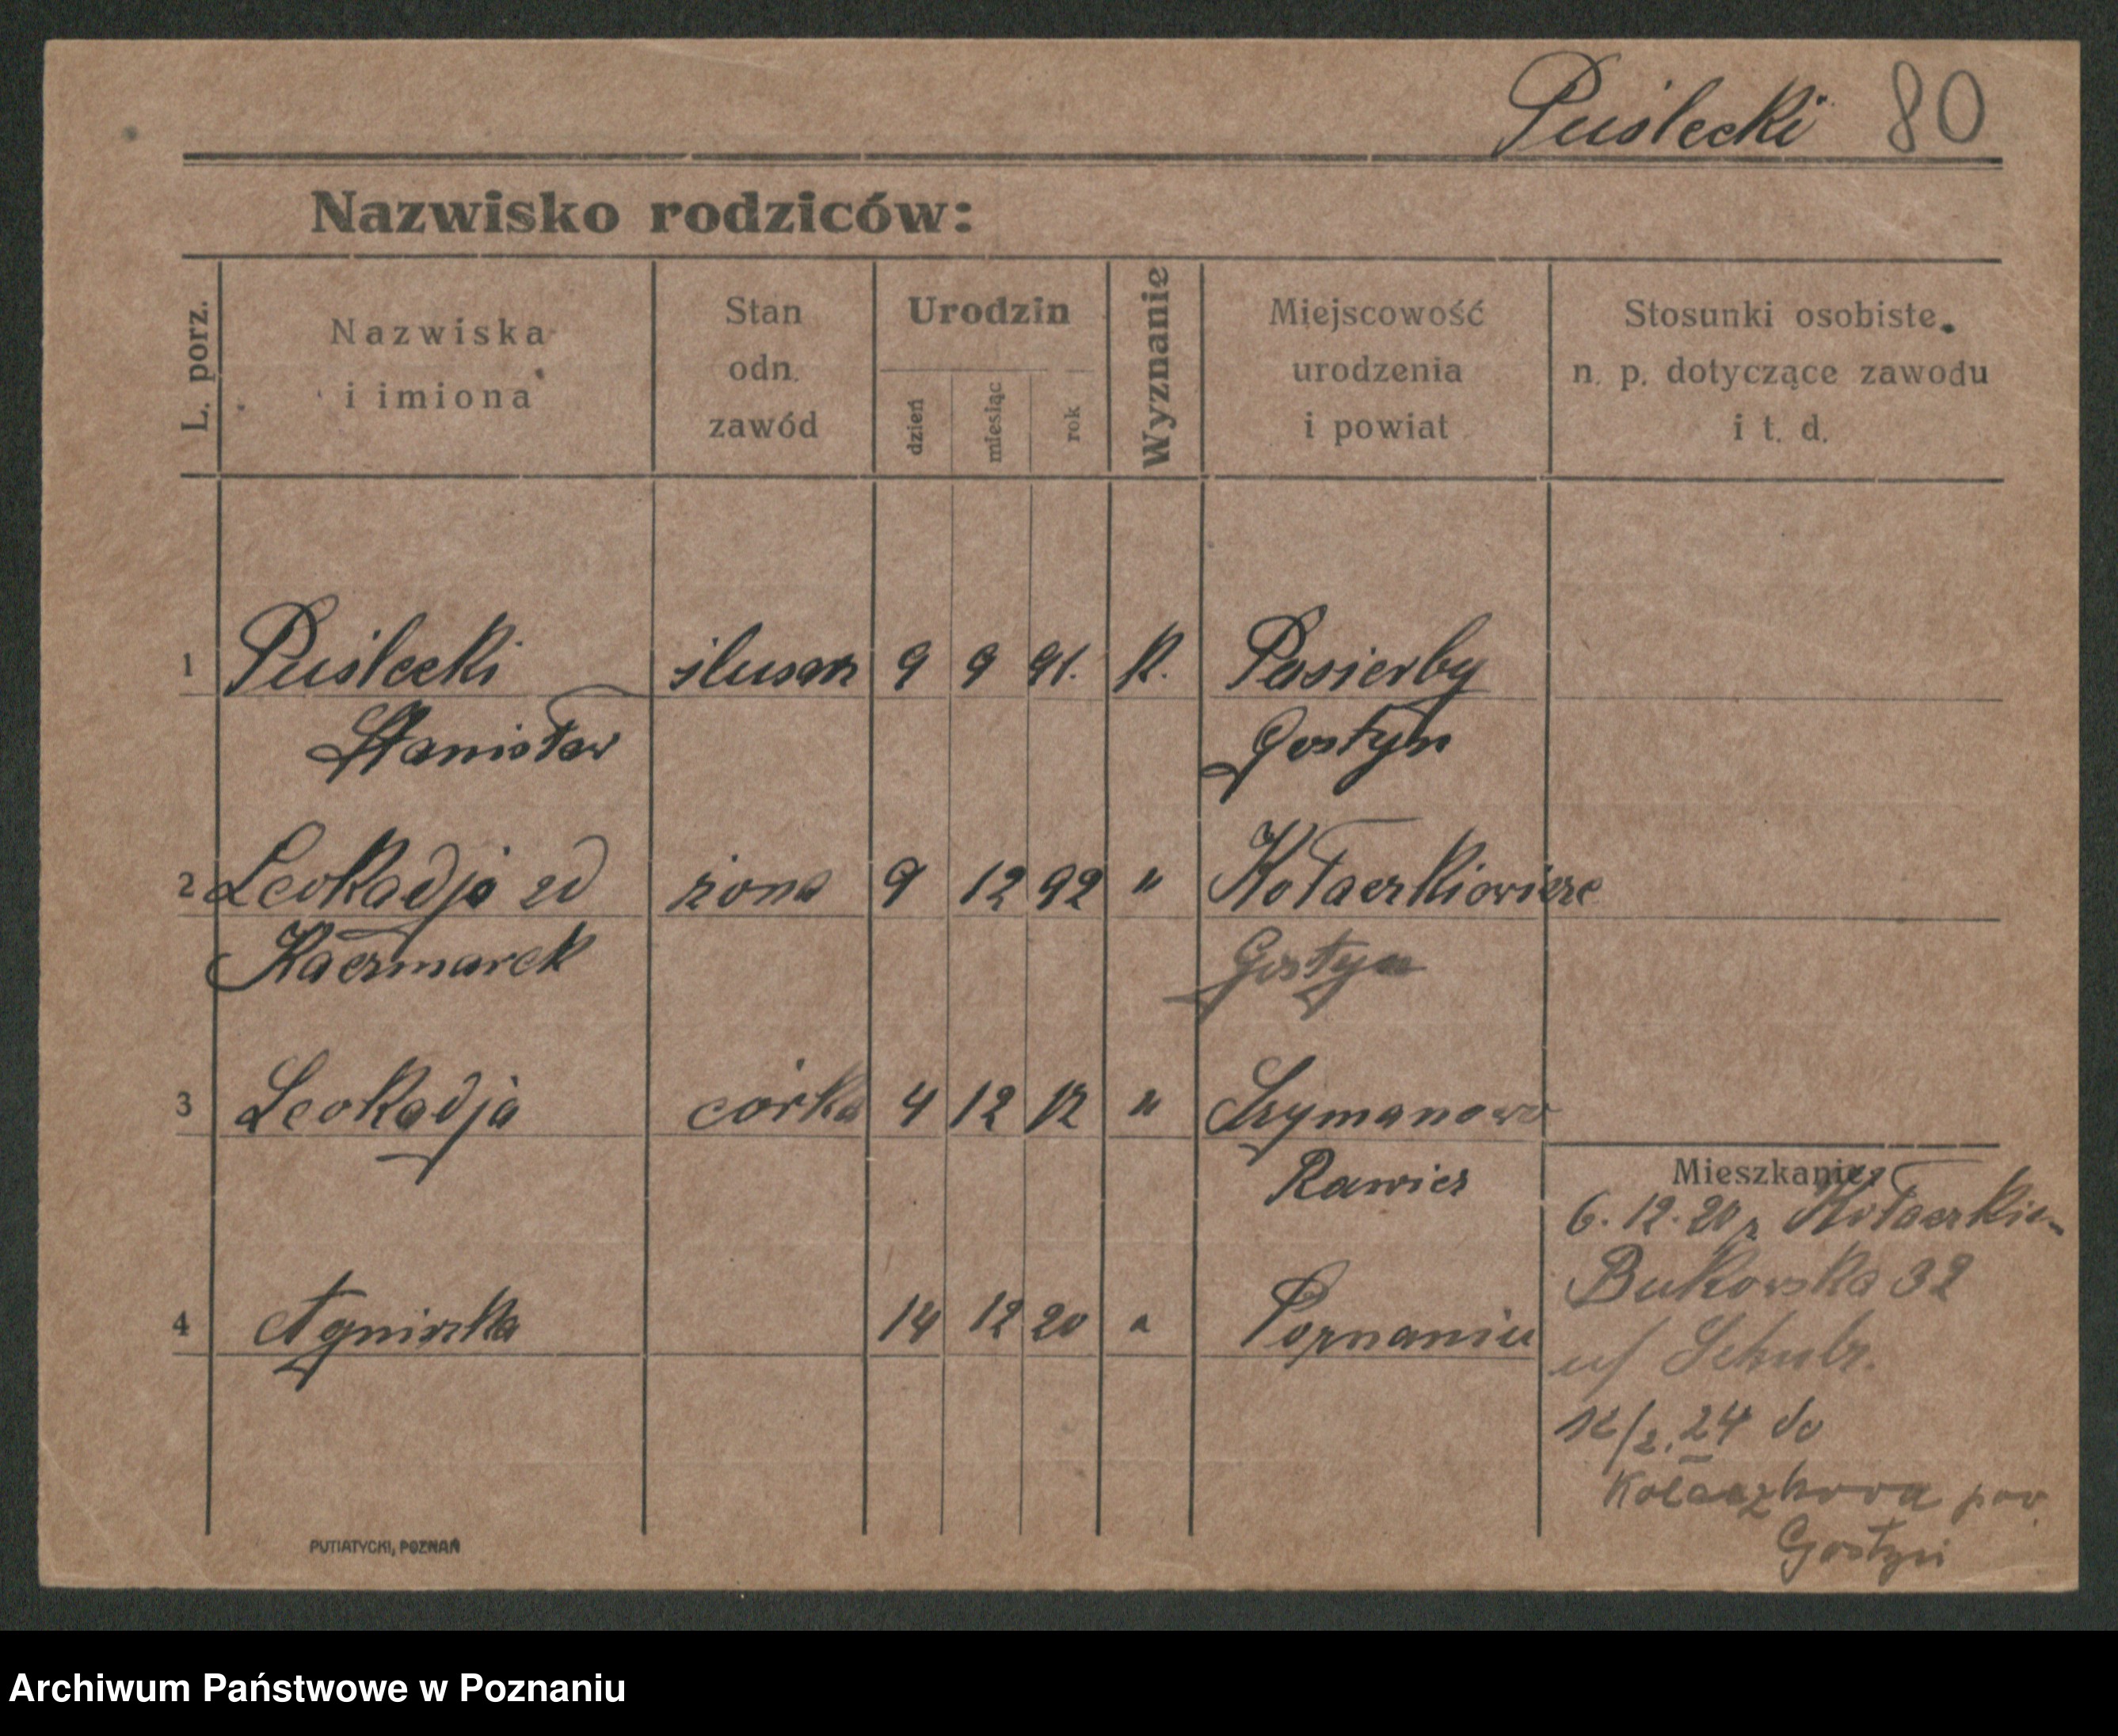 Puślecki 80
Nazwisko rodziców:
L. porz.
Nazwiska
i imiona
Stan
odn.
zawód
Urodzin
dzień
miesiąc
rok
Wyznanie
Miejscowość
urodzenia
i powiat
Stosunki osobiste.
n. p. dotyczące zawodu
i t. d.
1 Puślecki ślusarz 9 9 91. K. Pasierby
Stanisław Gostyn
2 Leokadja zd żona 9 12 92 " Kołaczkiowicze
Kaczmarek Gostyn
3 Leokadja córka 4 12 12 " Szymanowo
Rawicz
Mieszkanie:
6. 12. 20 z Kołaczkie-
Bukowska 32
4 Agnieszka 14 12 20 " Poznaniu
Schulz.
12/2. 24 do
pow.
Gostyń
PUTIATYCKI, POZNAŃ
Archiwum Państwowe w Poznaniu